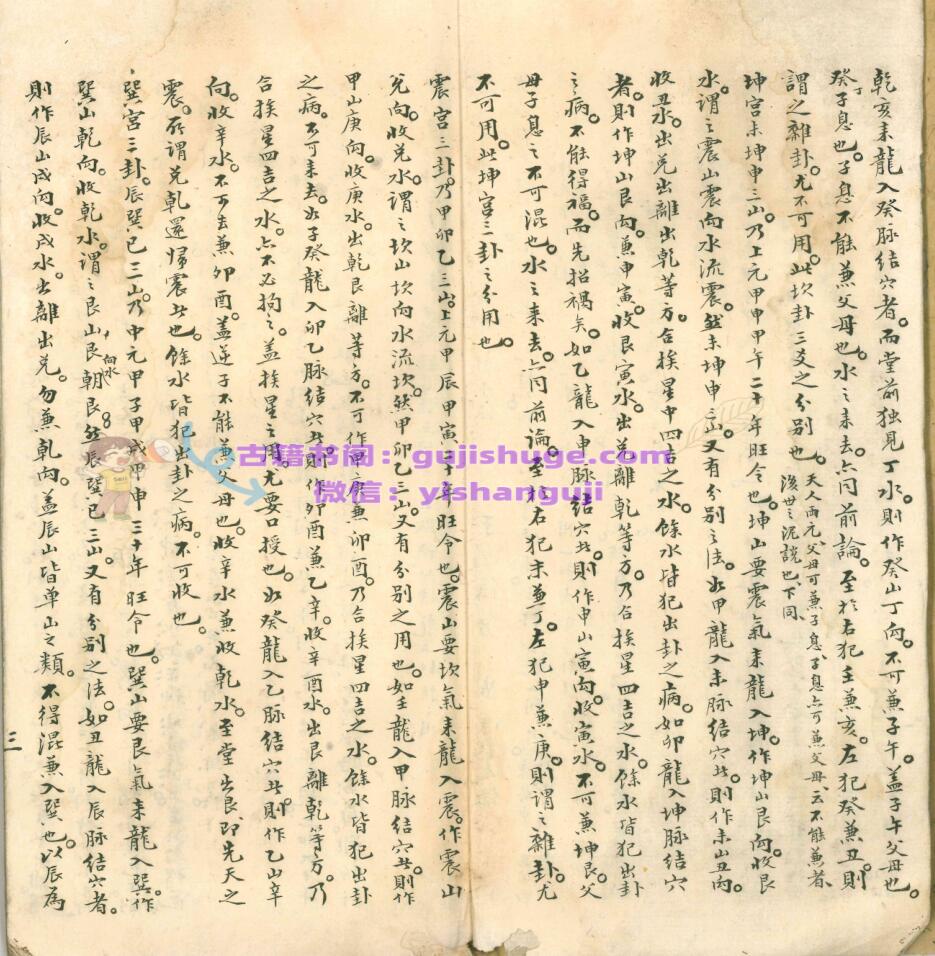 乾亥来龍入癸脉结穴者。而堂前独見丁水。則作癸山丁向。不可兼子午。盖子午父母也。
癸丁子息也。子息不能兼父母也。水之来去。亦同前論。至於右犯壬兼亥。左犯癸兼丑。則
謂之雜卦。尤不可用。此坎卦三爻之分别也。天人両元。父母可兼子息。子息亦可兼父母。云不能兼者、
後世之泥說也。下同、
坤宫未坤申三山。乃上元甲申甲午二十年旺令也。坤山要震氣来龍入坤。作坤山艮向。收艮
水。謂之震山震向水流震。然未坤申三山。又有分别之法。如甲龍入未脉结穴者。則作未山丑向。
收丑水。出兑出離出乾等方。合挨星中四吉之水。餘水皆犯出卦之病。如卯龍入坤脉结穴
者。則作坤山艮向。兼申寅。收艮寅水。出兑離乾等方。乃合挨星四吉之水。餘水皆犯出卦
之病。不能得福。而先招禍矣。如乙龍入申脉结穴者。則作申山寅向。收寅水。不可兼坤艮。父
母子息之不可混也。水之来去。亦同前論。至於右犯未兼丁。左犯申兼庚。則謂之雜卦。尤
不可用。此坤宫三卦之分用也。
震宫三卦。乃甲卯乙三山。上元甲辰甲寅二十年旺令也。震山要坎氣来龍入震。作震山
兑向。收兑水。謂之坎山坎向水流坎。然甲卯乙三山。又有分别之用也。如壬龍入甲脉结穴者。則作
甲山庚向。收庚水。出乾艮離等方。不可作甲庚兼卯酉。乃合挨星四吉之水。餘水皆犯出卦
之病。不可来去。如子癸龍入卯乙脉结穴者。則作卯酉兼乙辛。收辛酉水。出艮離乾等方。乃
合挨星四吉之水。亦不必拘之。盖挨星之用。尤要口授也。如癸龍入乙脉结穴者。則作乙山辛
向。收辛水。不可去兼卯酉。盖逆子不能兼父母也。收辛水兼收乾水。至堂出艮。即先天之
震。所謂兑乾還歸震者也。餘水皆犯出卦之病。不可收也。
巽宫三卦。辰巽巳三山。乃中元甲子甲戌甲申三十年旺令也。巽山要艮氣来龍入巽。作
巽山乾向。收乾水。謂之艮山艮向水朝艮。然辰巽巳三山。又有分别之法。如丑龍入辰脉结穴者。
則作辰山戌向。收戌水。出離出兑。勿兼乾向。盖辰山皆单山之類。不得混兼入巽也。以辰為
三
古籍书阁：gujishuge.com
微信：yishanguji